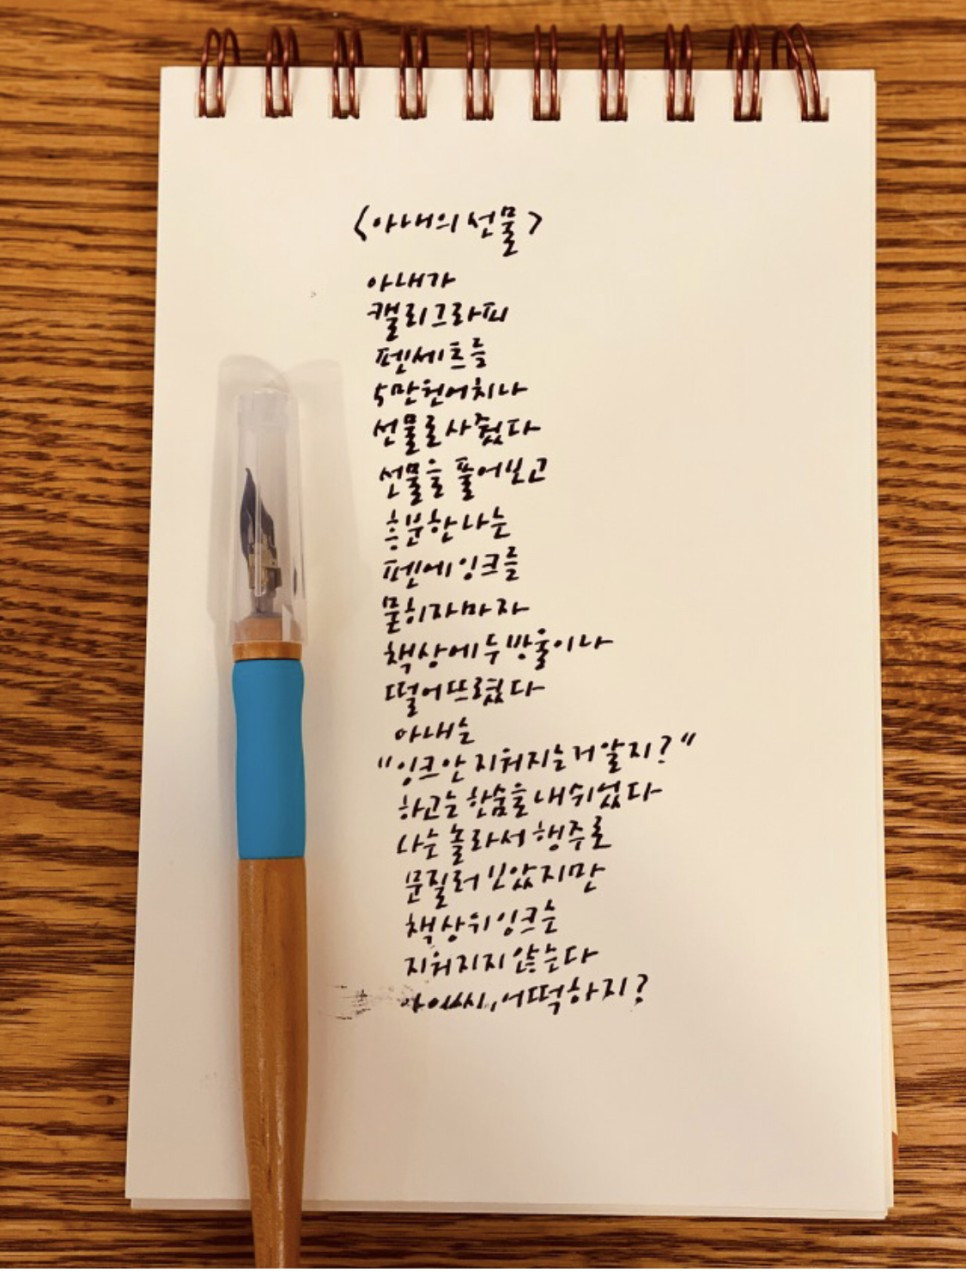 <아내의 선물>
아내가
캘리그라피
펜세트를
5만원어치나
선물로 사줬다
선물을 풀어보고
흥분한 나는
펜에 잉크를
묻히자마자
책상에 두방울이나
떨어뜨렸다
아내는
"잉크 안 지워지는거 알지?"
하고는 한숨을 내쉬었다
나는 놀라서 행주로
문질러 보았지만
책상위 잉크는
지워지지 않는다
아이씨, 어떡하지?